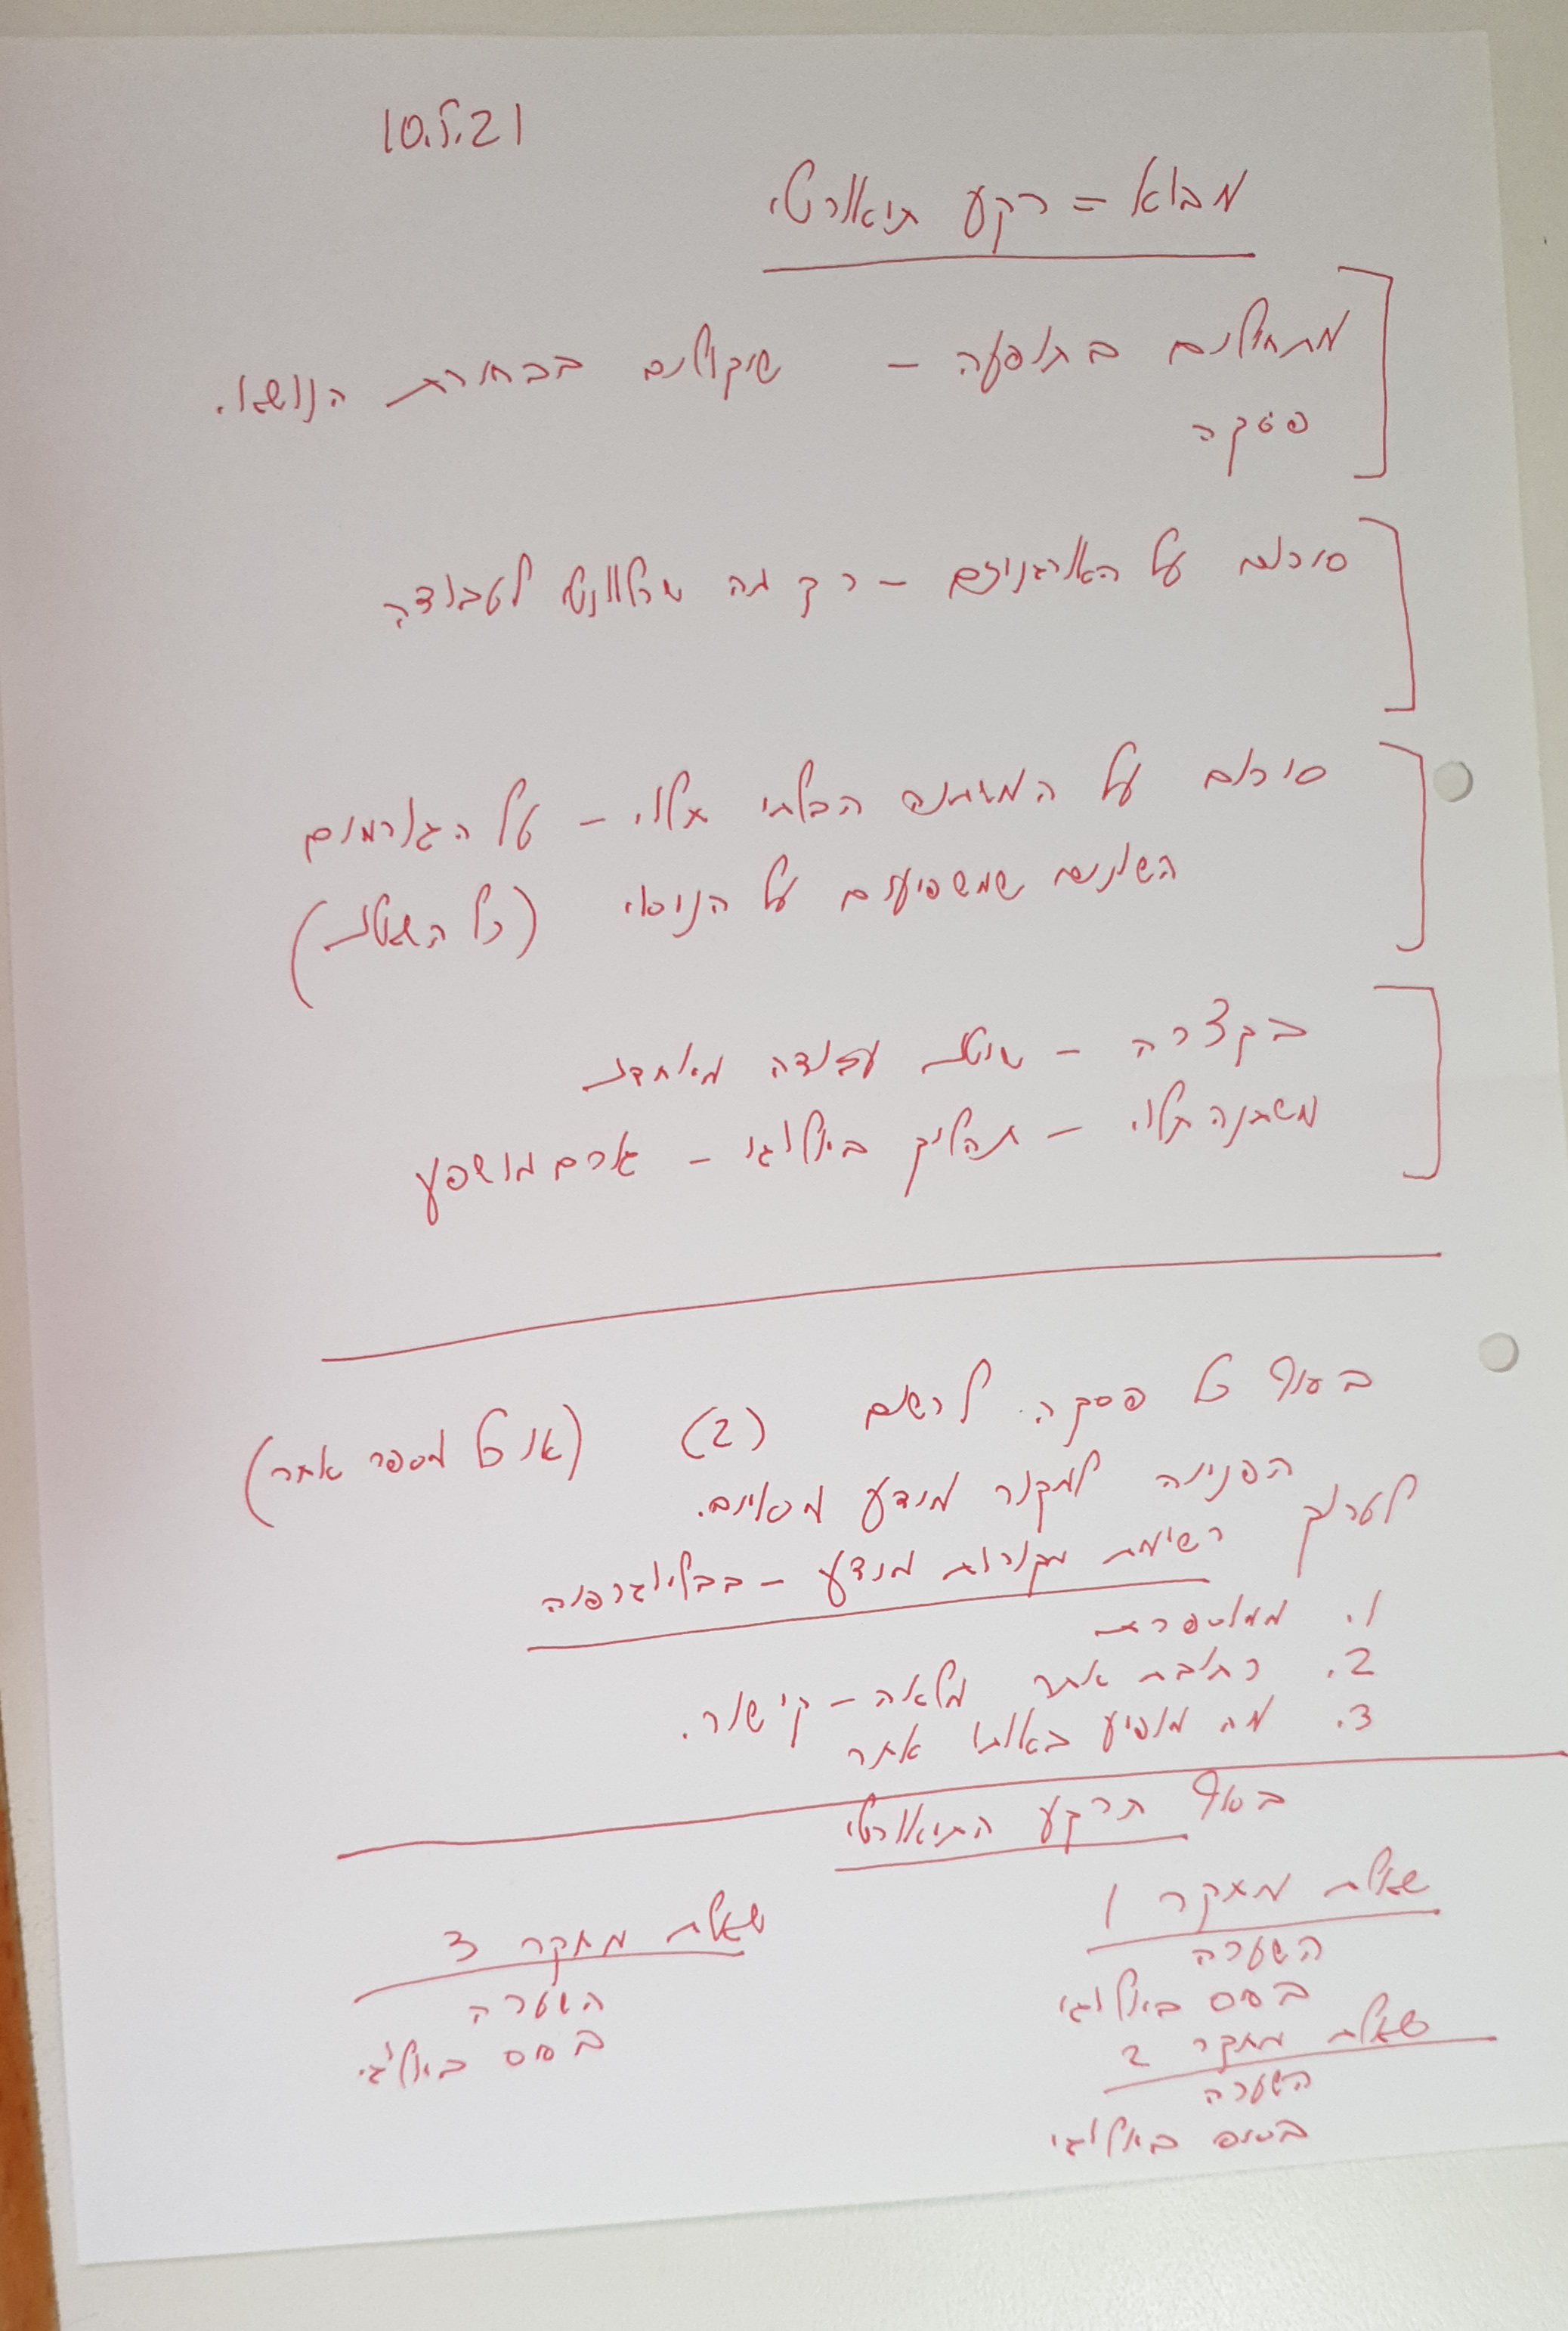 10.5.21
מבוא = רקע תיאורטי
מתחילים בתופעה – שיקולים בבחירת הנושא.
פסקה
סיכום על האורגניזם – רק מה שרלוונטי לעבודה
סיכום על המשתנה הבלתי תלוי – על הגורמים
השונים שמשפיעים על הניסוי (כל השאלות)
בקצרה – שיטת עבודה מיוחדת
משתנה תלוי – תהליך ביולוגי – גורם מושפע
בסוף כל פסקה לרשום (2) (או כל מספר אחר)
הפנייה למקור מידע מסוים.
לערוך רשימת מקורות מידע – בבליוגרפיה
1. ממוספרת
2. כתובת אתר מלאה – קישור.
3. מה מופיע באותו אתר
בסוף הרקע התיאורטי
שאלת מחקר 1
השערה
בסיס ביולוגי
שאלת מחקר 2
השערה
בסיס ביולוגי
שאלת מחקר 3
השערה
בסיס ביולוגי